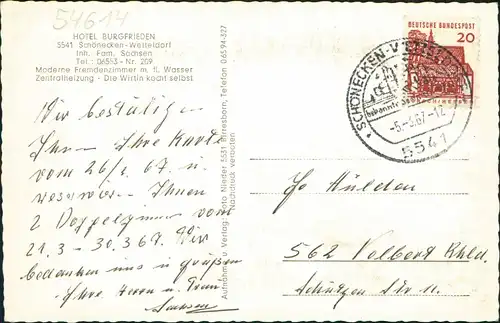 54614
HOTEL BURGFRIEDEN
5541 Schönecken-Wetteldorf
Inh. Fam. Sachsen
Tel.: 06553 - Nr. 209
Moderne Fremdenzimmer m. fl. Wasser
Zentralheizung - Die Wirtin kocht selbst
Wir bestätigen
Ihnen Ihre Karte
vom 26/2. 67. u.
reservieren Ihnen
2 Doppelzimmer vom
21.3 - 30.3 67. Wir
bedanken uns u. grüßen
Ihre Herrn u. Frau
Sachsen
Aufnahme u. Verlag: Foto Nieder 5531 Birresborn, Telefon 06594-827
Nachdruck verboten
DEUTSCHE BUNDESPOST
20
SCHÖNECKEN-WETTELDORF
-6.-3.67.-12
5541
Hülden
562 Velbert Rhld.